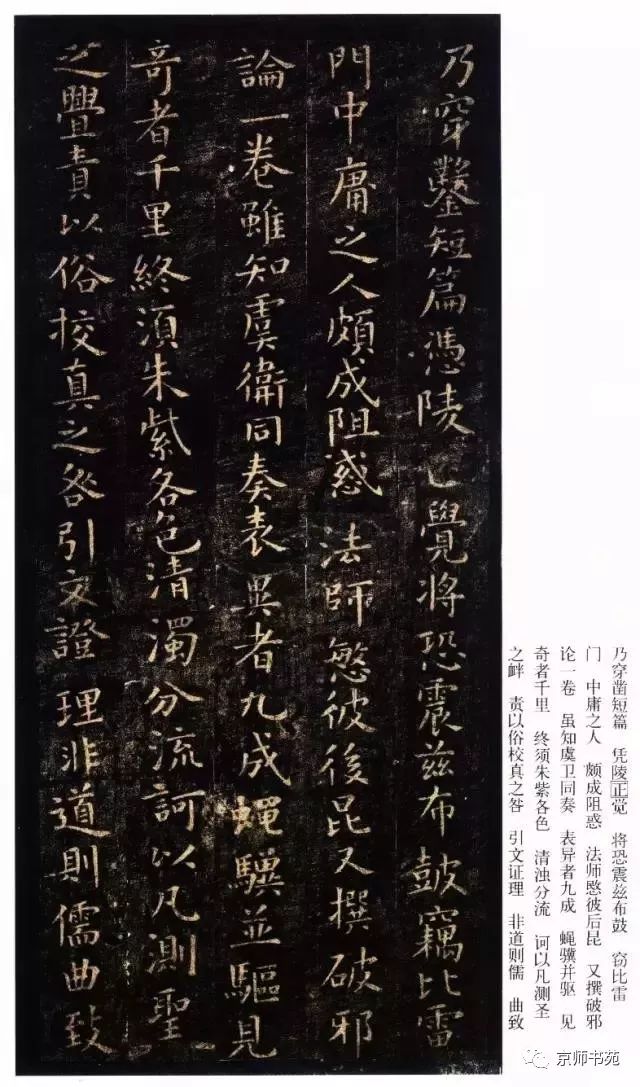 乃穿鑿短篇憑陵覺將恐震茲布鼓竊比雷
門中庸之人頗成阻惑法師慜彼後昆又撰破邪
論一卷雖知虞衛同奏表異者九成蝇驥並驅見
奇者千里終湏朱紫各色清濁分流訶以凡測聖
之舋責以俗挍真之咎引文證理非道則儒曲致
乃穿凿短篇 凭陵正觉 将恐震兹布鼓 窃比雷
门 中庸之人 颇成阻惑 法师愍彼后昆 又撰破邪
论一卷 虽知虞卫同奏 表异者九成 蝇骥并驱 见
奇者千里 终须朱紫各色 清浊分流 诃以凡测圣
之衅 责以俗校真之咎 引文证理 非道则儒 曲致
京师书苑